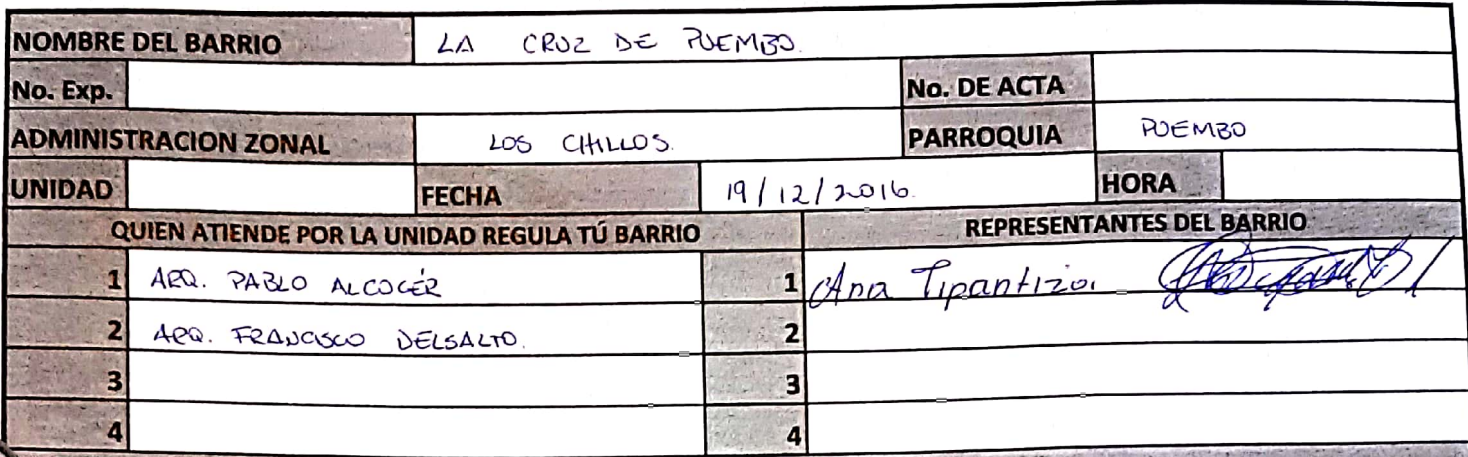 NOMBRE DEL BARRIO LA CRUZ DE PUEMBO.
No. Exp. No. DE ACTA
ADMINISTRACION ZONAL LOS CHILLOS. PARROQUIA PUEMBO
UNIDAD FECHA 19/12/2016. HORA
QUIEN ATIENDE POR LA UNIDAD REGULA TÚ BARRIO REPRESENTANTES DEL BARRIO
1 ARQ. PABLO ALCOCÉR 1 Ana Tipantiza
2 ARQ. FRANCISCO DELSALTO. 2
3 3
4 4